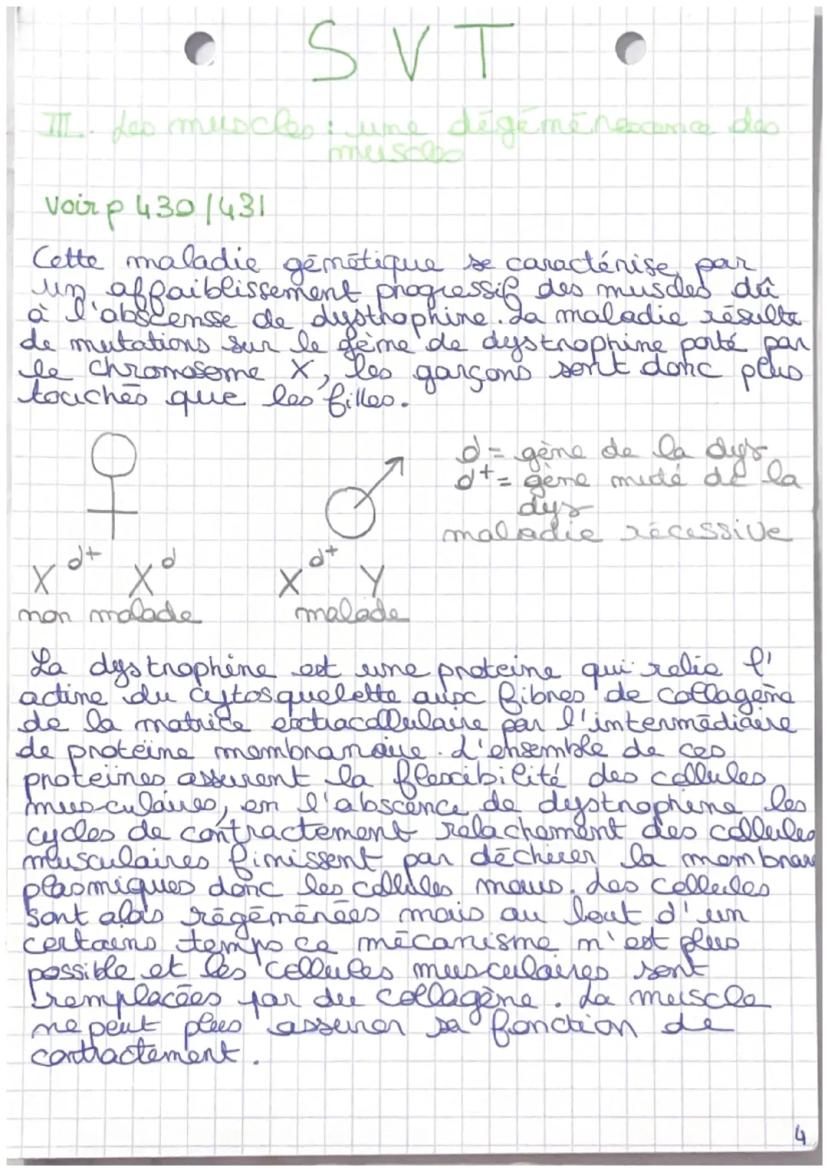 SVT
III. Les muscles : une dégénérescence des
muscles
Voir p 430/431
Cette maladie génétique se caractérise par
un affaiblissement progressif des muscles dû
à l'abscense de dystrophine. La maladie résulte
de mutations sur le gène de dystrophine porté par
le chromosome X, les garçons sont donc plus
touchés que les filles.
d = gène de la dys
d+ = gène muté de la
dys
maladie récessive
X d+ X d
non malade
X d+ Y
malade
La dystrophine est une proteine qui relie l'
actine du cytosquelette aux fibres de collagène
de la matrice extracellulaire par l'intermédiaire
de protéine membranaire. L'ensemble de ces
proteines assurent la flexibilité des cellules
musculaires, en l'abscence de dystrophine les
cycles de contractement relachement des cellules
musculaires finissent par déchirer la membran
plasmiques donc les cellules meurs. Les cellules
sont alors régénérées mais au bout d'un
certains temps ce mécanisme n'est plus
possible et les cellules musculaires sont
remplacées par du collagène. La muscle
ne peut plus assurer sa fonction de
contractement.
4